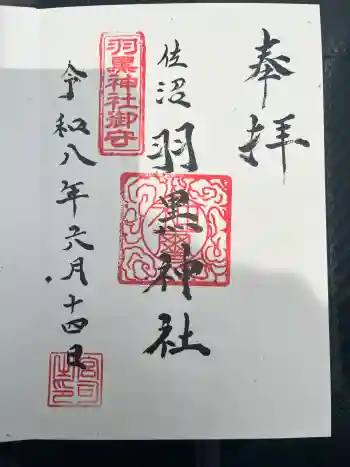 奉拝
佐沼
羽黒神社
羽黒神社御守
令和八年六月十四日
宮司之印